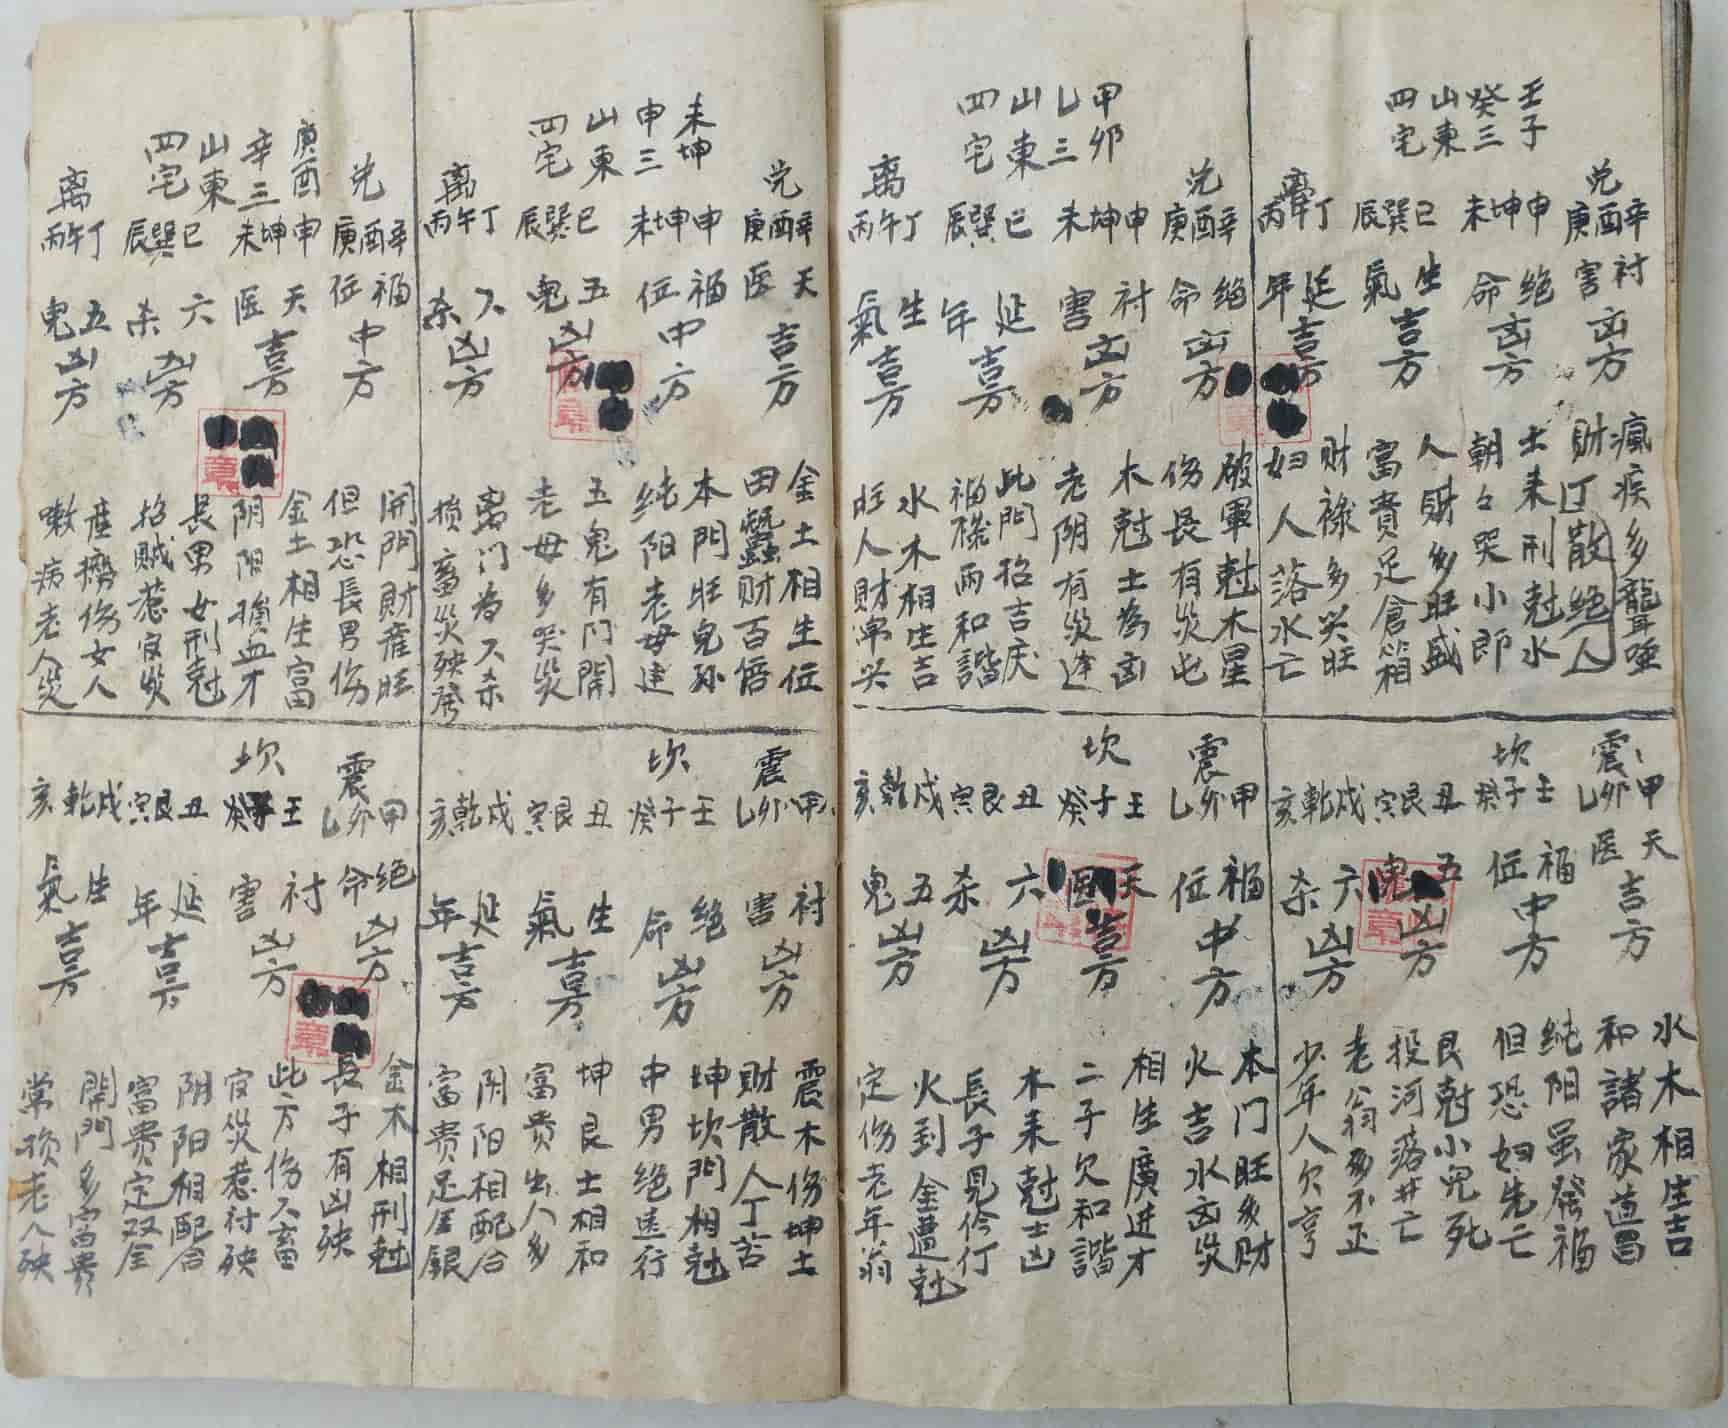 壬子
癸三
山東
四宅
兑
庚酉辛
衬害
凶方
未坤申
绝命
凶方
辰巽巳
生氣
吉方
离
丙午丁
延年
吉方
瘋疾多聾哑
财丁散绝人
土来刑尅水
朝々哭小郎
人财多旺盛
富貴足倉箱
财禄多兴旺
妇人落水亡
震
乙卯甲
天医
吉方
坎
癸子壬
福位
中方
寅艮丑
五鬼
凶方
亥乾戌
六杀
凶方
水木相生吉
和諸家道昌
纯阳虽發福
但恐妇先亡
艮尅小兒死
投河落井亡
老翁多不正
少年人欠亨
甲卯
乙三
山東
四宅
兑
庚酉辛
绝命
凶方
未坤申
衬害
凶方
辰巽巳
延年
吉方
离
丙午丁
生氣
吉方
破軍尅木星
伤長有災屯
木尅土為凶
老阴有災逢
此門招吉庆
福禄两和諧
水木相生吉
旺人财帛兴
震
乙卯甲
福位
中方
坎
癸子壬
天医
吉方
寅艮丑
六杀
凶方
亥乾戌
五鬼
凶方
本门旺多财
火吉水凶災
相生廣进才
二子欠和諧
木来尅土凶
長子見伶仃
火到金遭尅
定伤老年翁
未坤
申三
山東
四宅
兑
庚酉辛
天医
吉方
未坤申
福位
中方
辰巽巳
五鬼
凶方
离
丙午丁
六杀
凶方
金土相生位
田蠶财百倍
本門旺兒孙
纯阳老母建
五鬼有门開
老母多哭災
离门為六杀
损畜災殃發
震
乙卯甲
衬害
凶方
坎
癸子壬
绝命
凶方
寅艮丑
生氣
吉方
亥乾戌
延年
吉方
震木伤坤土
财散人丁苦
坤坎門相尅
中男绝远行
坤艮土相和
富贵出人多
阴阳相配合
富贵足金銀
庚酉
辛三
山東
四宅
兑
庚酉辛
福位
中方
未坤申
天医
吉方
辰巽巳
六杀
凶方
离
丙午丁
五鬼
凶方
開門財産旺
但恐長男伤
金土相生富
阴阳损血才
長男女刑尅
招贼惹官災
産癆伤女人
嗽病老人災
震
乙卯甲
绝命
凶方
坎
癸子壬
衬害
凶方
寅艮丑
延年
吉方
亥乾戌
生氣
吉方
金木相刑尅
長子有凶殃
此方伤六畜
官災惹衬殃
阴阳相配合
富贵定双全
開門多富贵
常损老人殃